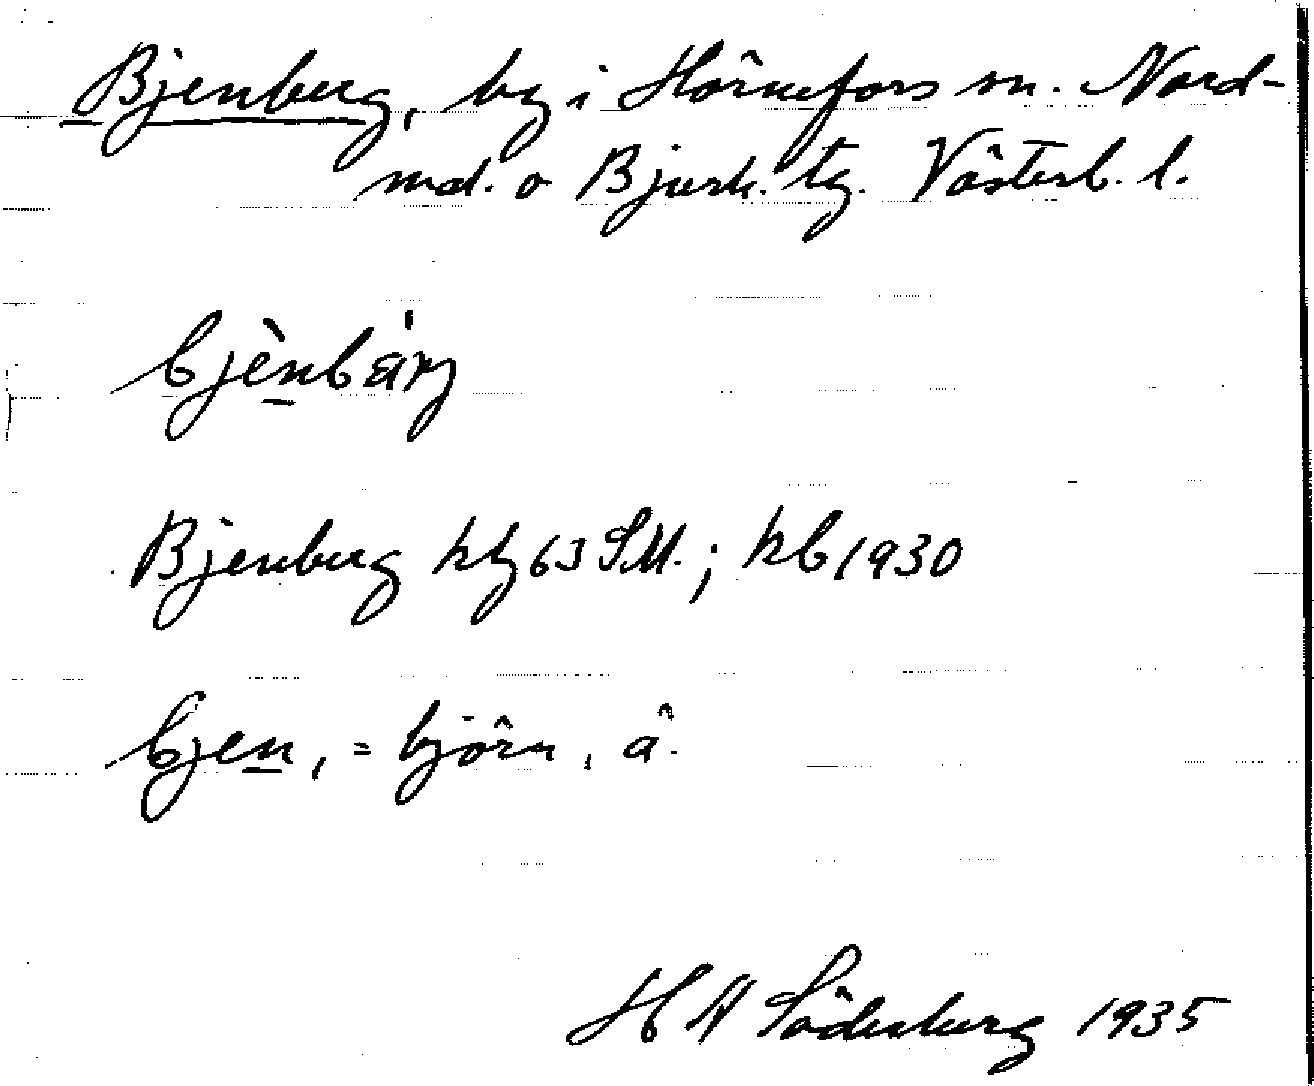 Bjenberg, by i Hörnefors sn. Nord-
mal. o Bjurh. tg. Västerb. l.
bjènbä́rj
Bjenberg kbg 63 SM.; kb 1930
bjen, = björn, â.
H A Söderberg 1935